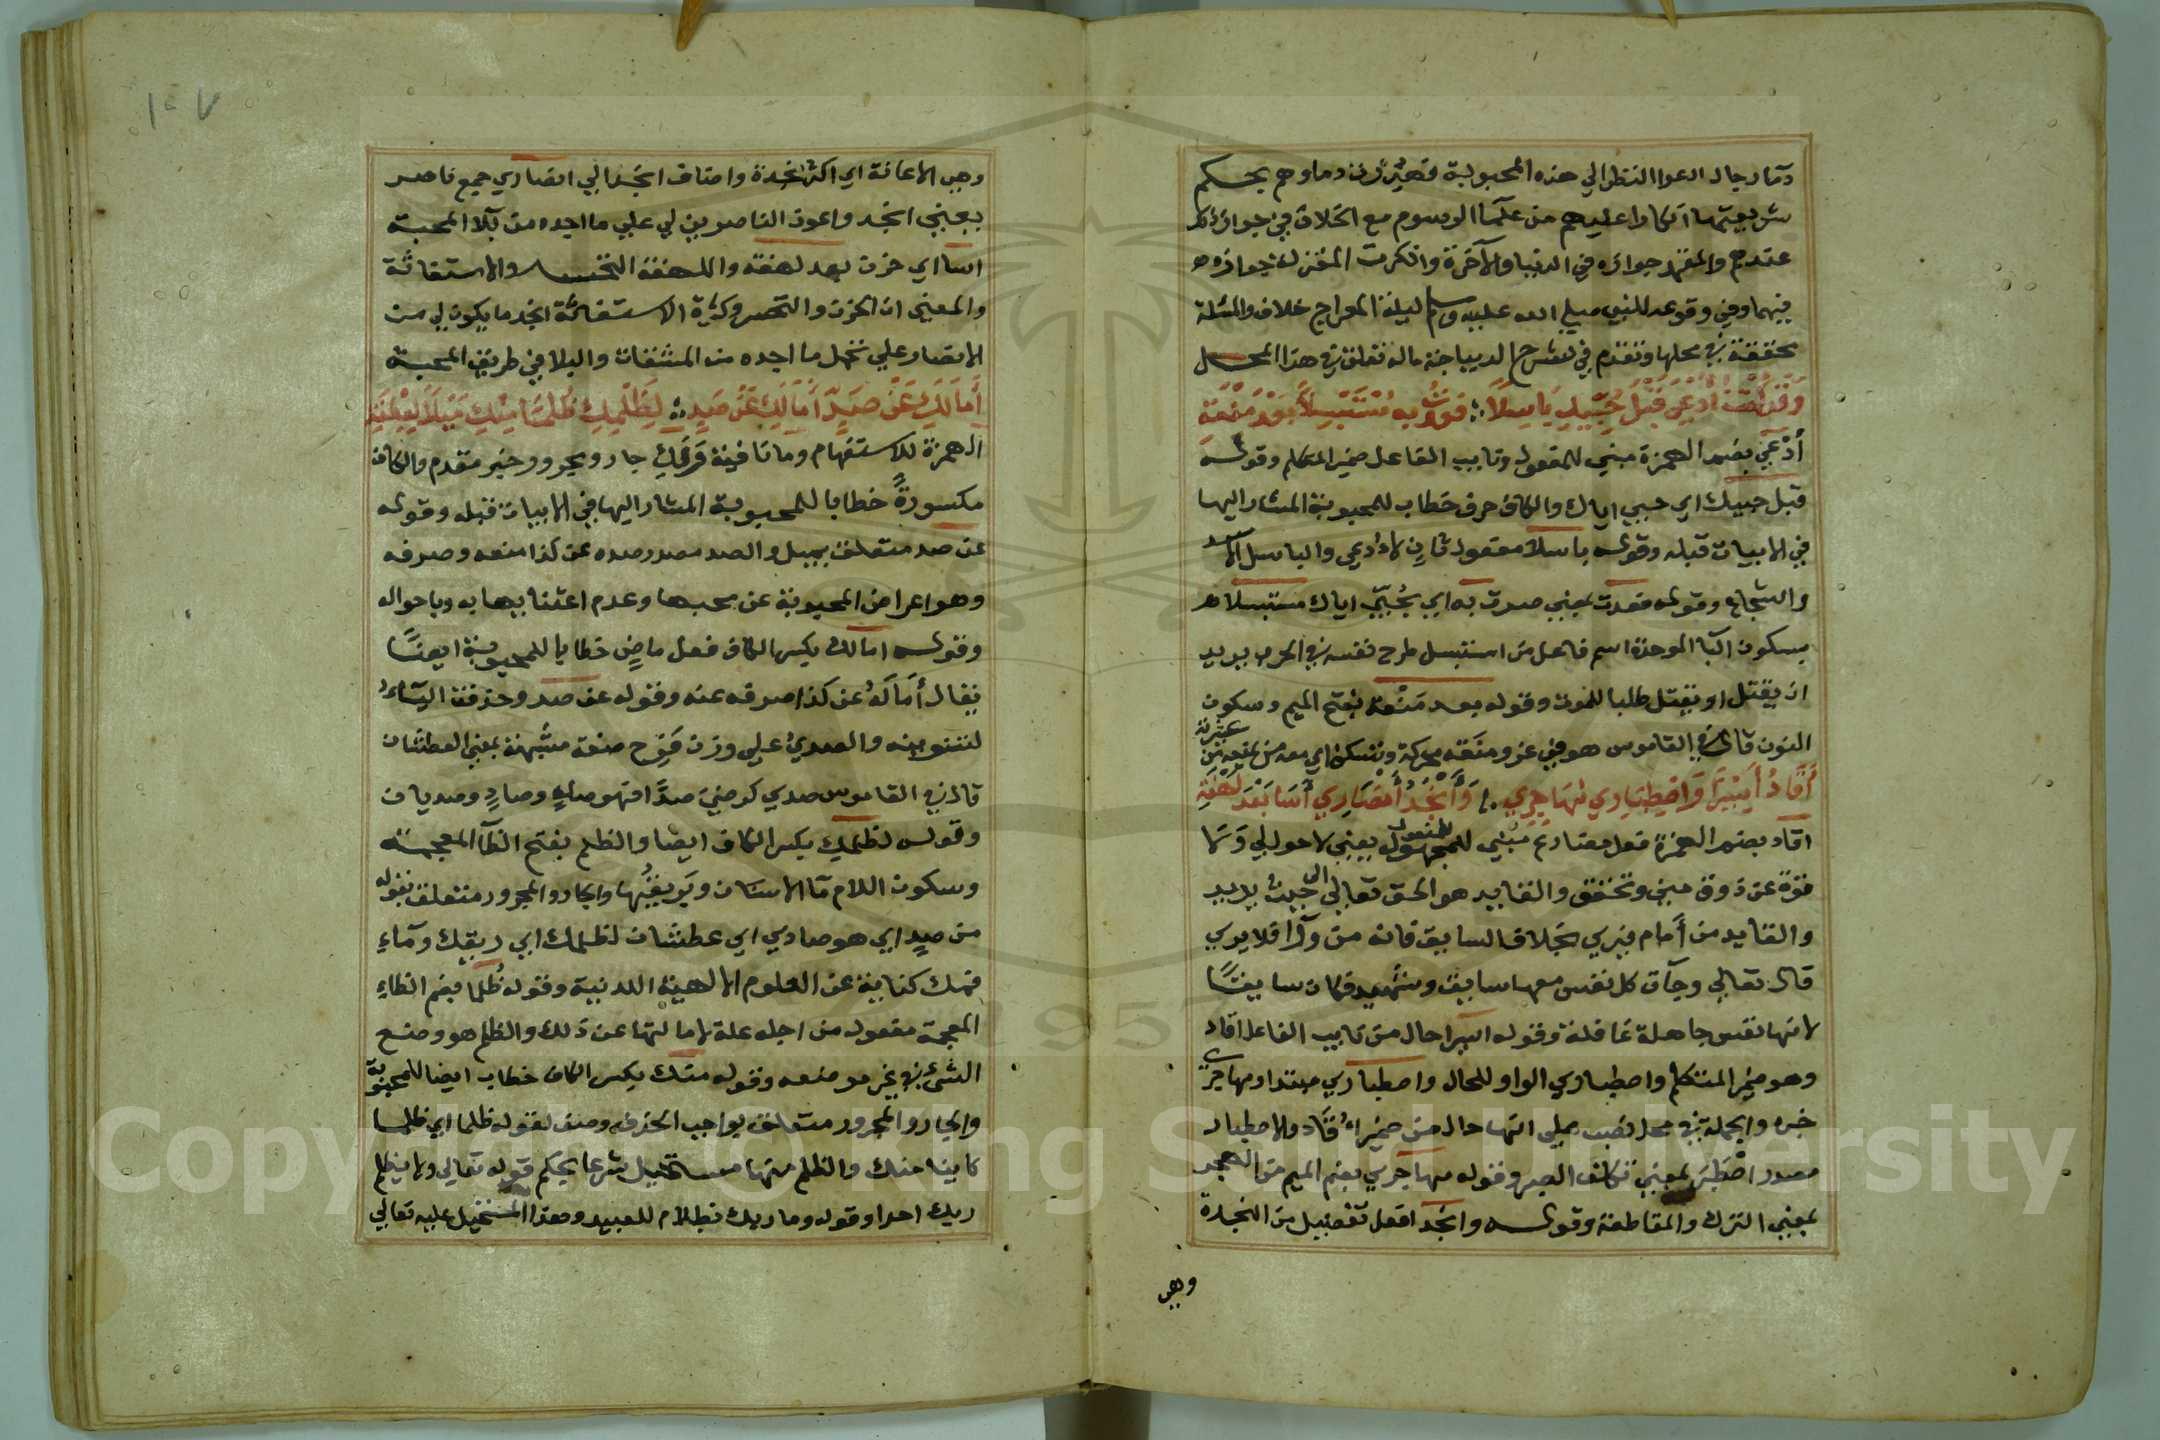 دماء رجال ادعوا النظر الي هذه المحبوبة فهي تريق دماوهم بحكم
شريعتها انكارا عليهم من علماء الرسوم مع الخلاف في جواز ذلك
عندهم والمفتى جوازه في الدنيا والآخرة وانكرت المعتزلة جوازه
فيهما وفي وقوعه للنبي صلي الله عليه وسلم ليلة المعراج خلاف والمسئلة
محققة في محلها وتقدم في شرح الديباجة ماله تعلق في هذا المحل
وقد كنت أدعى قبل حبيك باسلا فعدت به مستبسلا بعد منعة
أدعي بضم الهمزة مبني للمفعول ونايب الفاعل ضمير المتكلم وقوله
قبل حبيك اي حبي اياك والكاف حرف خطاب للمحبوبة المشار اليها
في الابيات قبله وقوله باسلا مفعول ثان لادعي والباسل الاسد
والشجاع وقوله فعدت بمعني صرت به اي بحبي اياك مستبسلا
بسكون الباء الموحدة اسم فاعل من استبسل طرح نفسه في الحرب يريد
ان يقتل او يقتل طلبا للموت وقوله بعد منعة بفتح الميم وسكون
النون قال في القاموس هو في عز ومنعة محركة وتسكن اي معه من يمنعه من عشيرته
أقاد أسيرا واصطباري مهاجري وأنجد أنصاري أسا بعد لهفة
اقاد بضم الهمزة فعل مضارع مبني للمجهول للمفعول يعني لا حول لي ولا
قوة عن ذوق مني وتحقق والقايد هو الحق تعالي الى حيث يريد
والقايد من أمام فيري بخلاف السايق فانه من وراء فلا يري
قال تعالي وجآت كل نفس معها سايق وشهيد فكان سايقا
لانها نفس جاهلة غافلة وقوله اسيرا حال من نايب الفاعل اقاد
وهو ضمير المتكلم واصطباري الواو للحال واصطباري مبتدا ومهاجري
خبره والجملة في محل نصب علي انها حال من ضمير أقاد والاصطبار
مصدر اصطبر بمعني تكلف الصبر وقوله مهاجري بضم الميم من الهجر
بمعني الترك والمقاطعة وقوله وانجد افعل تفضيل من النجدة
وهي
١٠٧
وهي الاعانة اي اكثر نجدة واضاف انجد الي انصاري جمع ناصر
يعني انجد واعون الناصرين لي علي ما اجده من بلاء المحبة
اسا اي حزن بعد لهفة واللهفة التحسر والاستغاثة
والمعني ان الحزن والتحسر وكثرة الاستغاثة انجد ما يكون لي من
الانصار علي تحمل ما اجده من المشقات والبلا في طريق المحبة
أما لك عن صد أمالك عن صد لظلمك ظلما منك ميل لعطفة
الهمزة للاستفهام وما نافية ولك جار ومجرور خبر مقدم والكاف
مكسورة خطابا للمحبوبة المشار اليها في الابيات قبله وقوله
عن صد متعلق بميل والصد مصدر صده عن كذا منعه وصرفه
وهو اعراض المحبوبة عن محبها وعدم اعتنايها به وباحواله
وقوله امالك بكسر الكاف فعل ماض خطابا للمحبوبة ايضا
يقال أماله عن كذا صرفه عنه وقوله عن صد وحذفت الياء
لتنوينه والصدي علي وزن فرح صفة مشبهة بمعني العطشان
قال في القاموس صدي كرضي صدا فهو صد وصاد وصديان
وقوله لظلمك بكسر الكاف ايضا والظلم بفتح الظاء المعجمة
وسكون اللام ماء الاسنان وبريقها والجار والمجرور متعلق بقوله
من صد اي هو صادي اي عطشان لظلمك اي ريقك وماء
فمك كناية عن العلوم الالهية اللدنية وقوله ظلما بضم الظاء
المعجمة مفعول من اجله علة لامالتها عن ذلك والظلم هو وضع
الشيء في غير موضعه وقوله منك بكسر الكاف خطاب ايضا للمحبوبة
والجار والمجرور متعلق بواجب الحذف وصف لقوله ظلما اي ظلما
كاينا منك والظلم منها مستحيل شرعا بحكم قوله تعالي ولا يظلم
ربك احدا وقوله وما ربك بظلام للعبيد وهذا المستحيل عليه تعالي
Copyright © King Saud University
1957